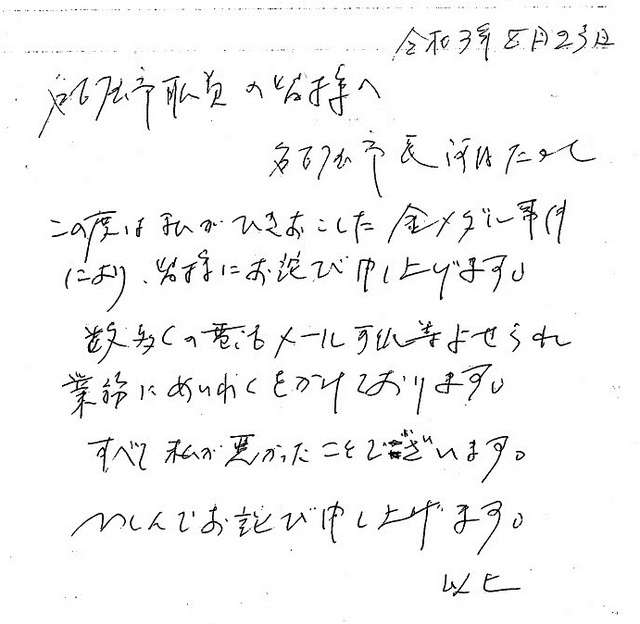 令和3年8月23日
名古屋市職員の皆様へ
名古屋市長河村たかし
この度は私がひきおこした金メダル事件
により、皆様にお詫び申し上げます。
数多くの電話メール手紙等よせられ
業務にめいわくをかけております。
すべて私が悪かったことでございます。
つつしんでお詫び申し上げます。
以上